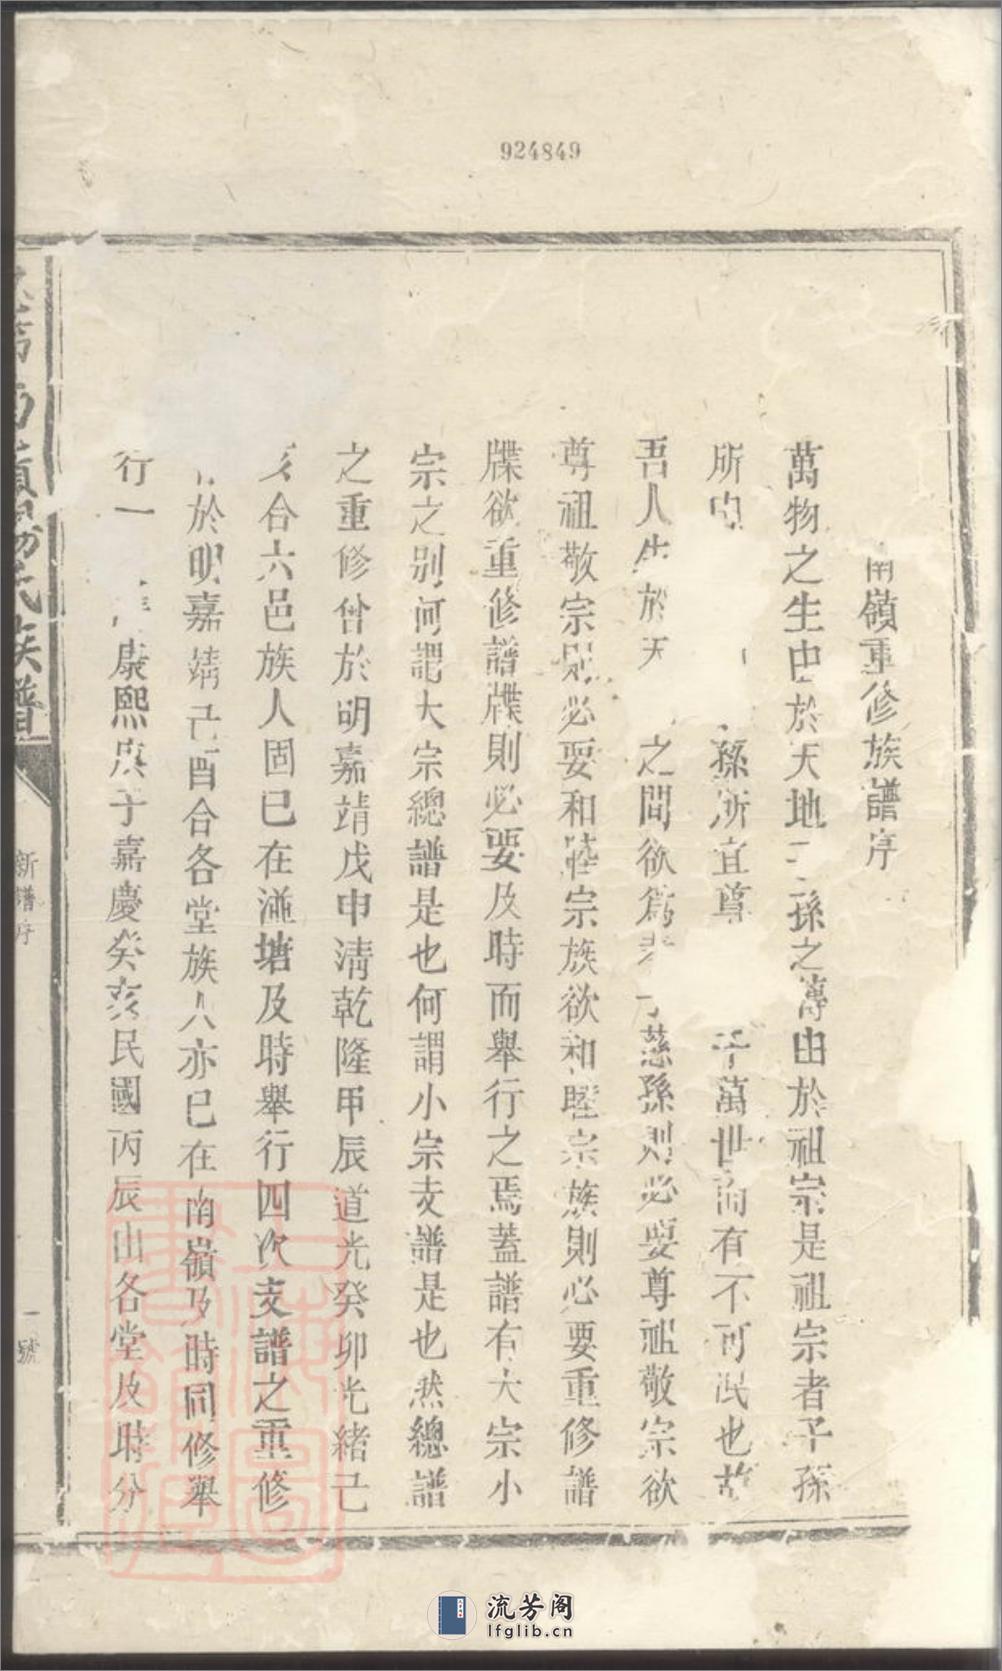 924849
南嶺重修族譜序
萬物之生由於天地子孫之傳由於祖宗是祖宗者子孫
所由 孫所宜尊 千萬世而有不可泯也故
吾人生於天 之間欲為孝 慈孫則必要尊祖敬宗欲
尊祖敬宗則必要和睦宗族欲和睦宗族則必要重修譜
牒欲重修譜牒則必要及時而舉行之焉蓋譜有大宗小
宗之别何謂大宗總譜是也何謂小宗支譜是也然總譜
之重修曾於明嘉靖戊申清乾隆甲辰道光癸卯光緒己
亥合六邑族人固已在湴塘及時舉行四次支譜之重修
於明嘉靖己酉合各堂族人亦已在南嶺及時同修舉
行一 康熙庚子嘉慶癸亥民國丙辰由各堂及時分
南嶺楊氏族譜
新譜序
一號
上海圖書館藏
流芳阁
lfglib.cn